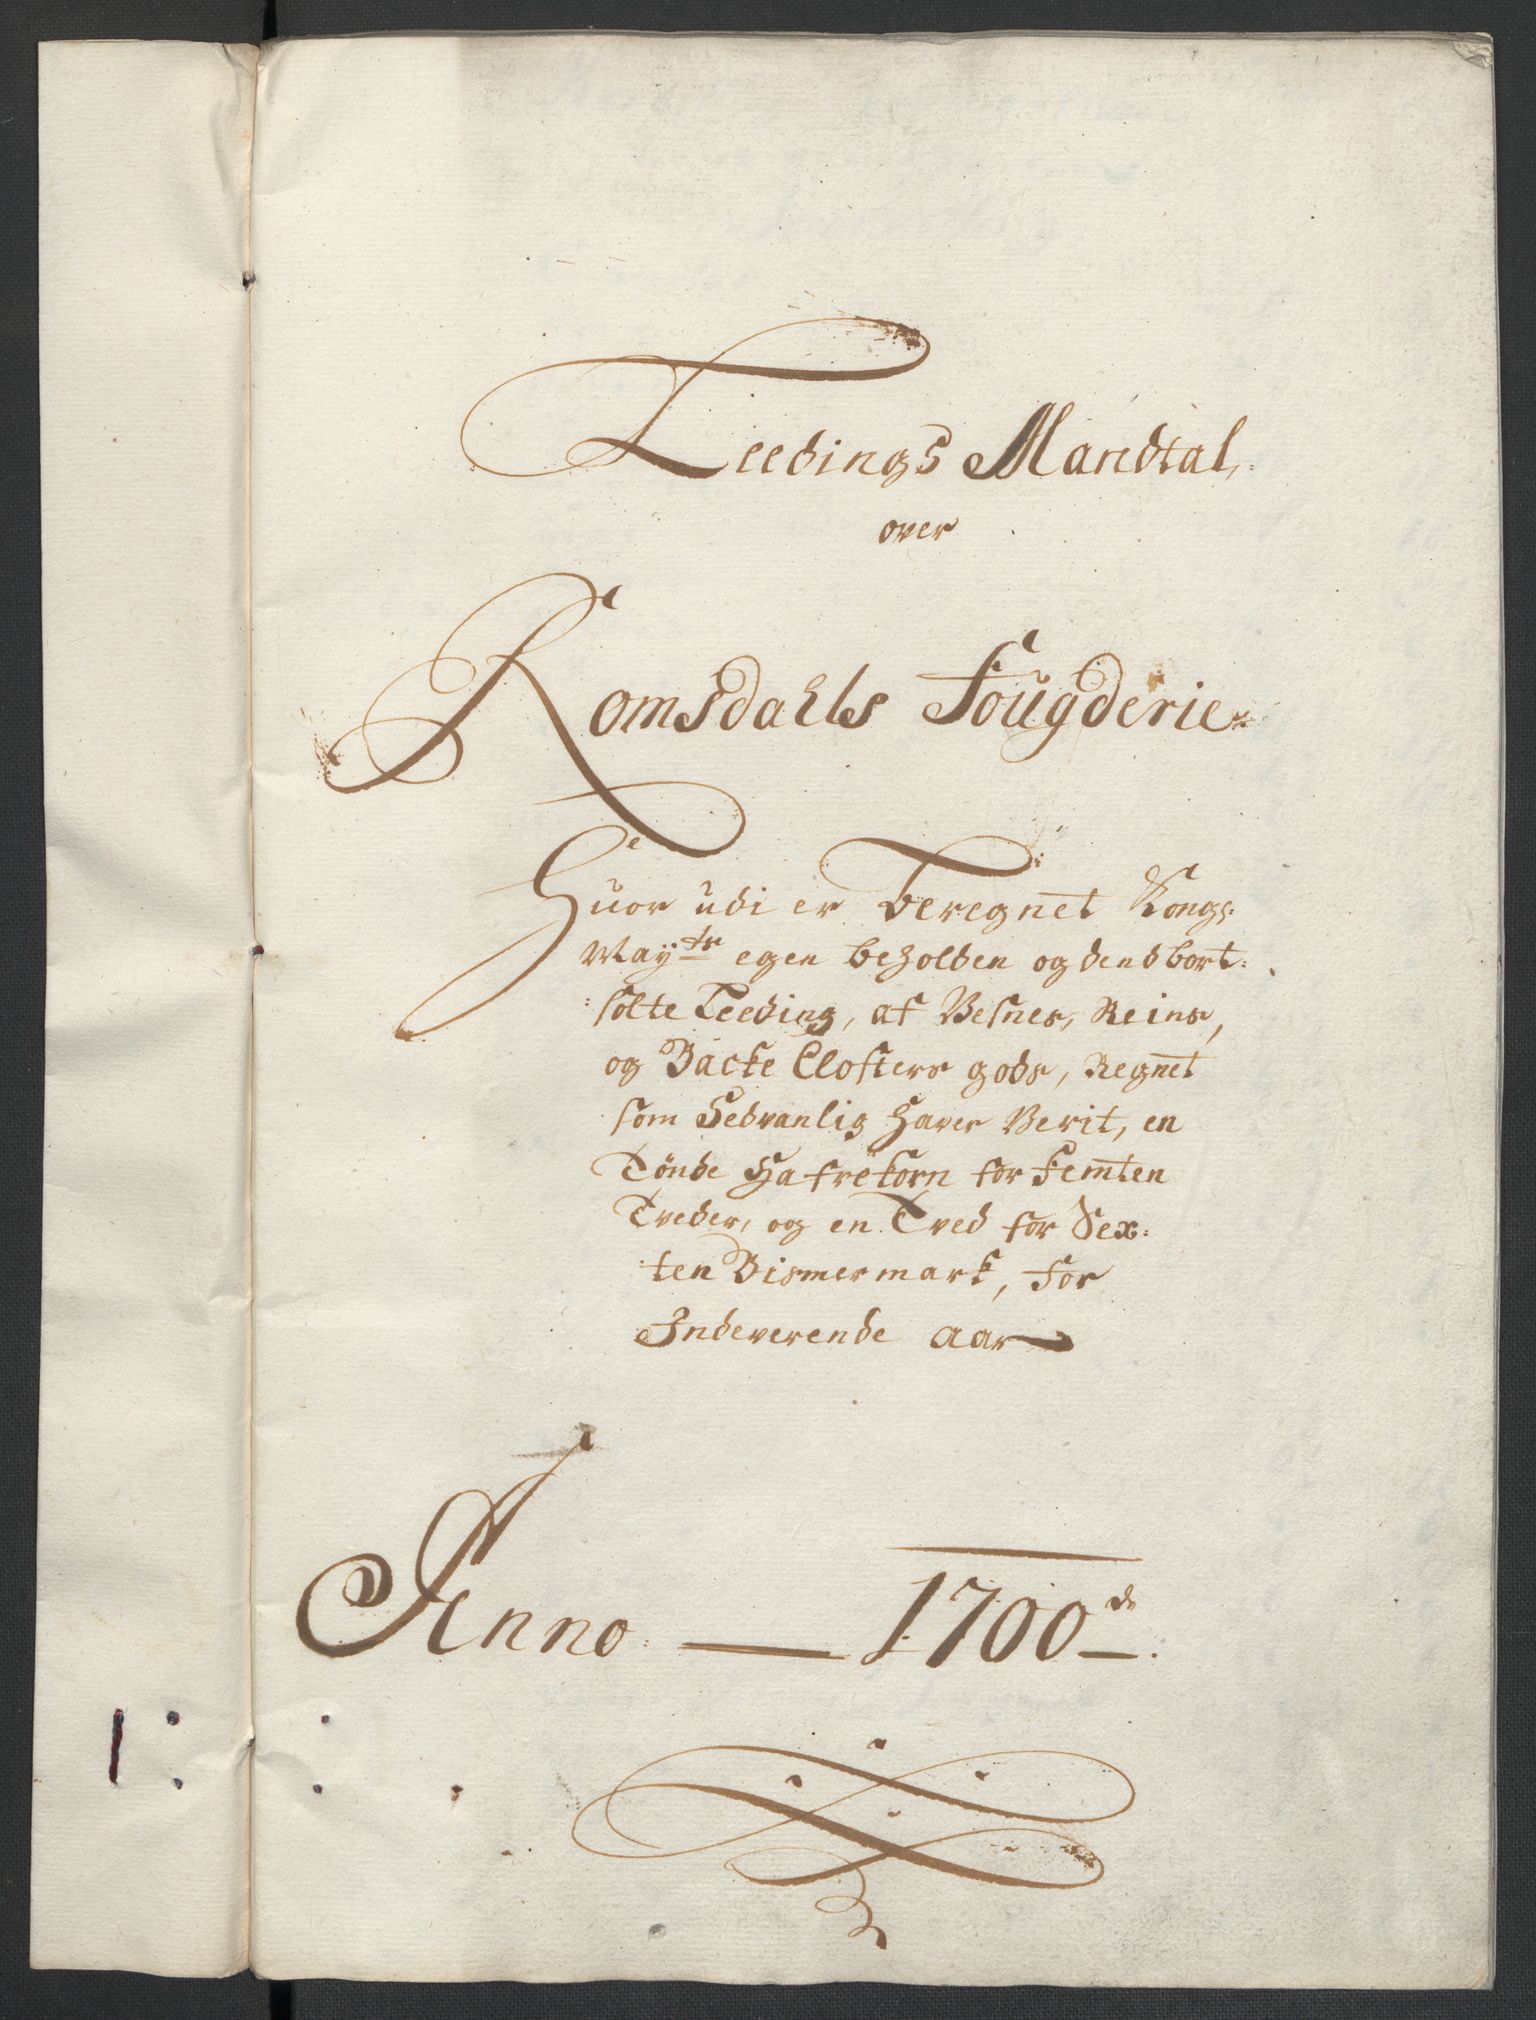 Leedings Mandtal,
over
Romsdahls Fougderie
Huor udi er Beregnet Kongs:
May:ts egen beholden og dend bort:
solte Leeding, af Vesnes, Reins,
og Backe Closters gods, Regnet
som Sedvanlig Haver Verit, en
Tønde Hafrekorn for Femten
Tveder, og en Tved for Sex:
ten Bismermark, for
Indeverende aar
Anno 1700de.